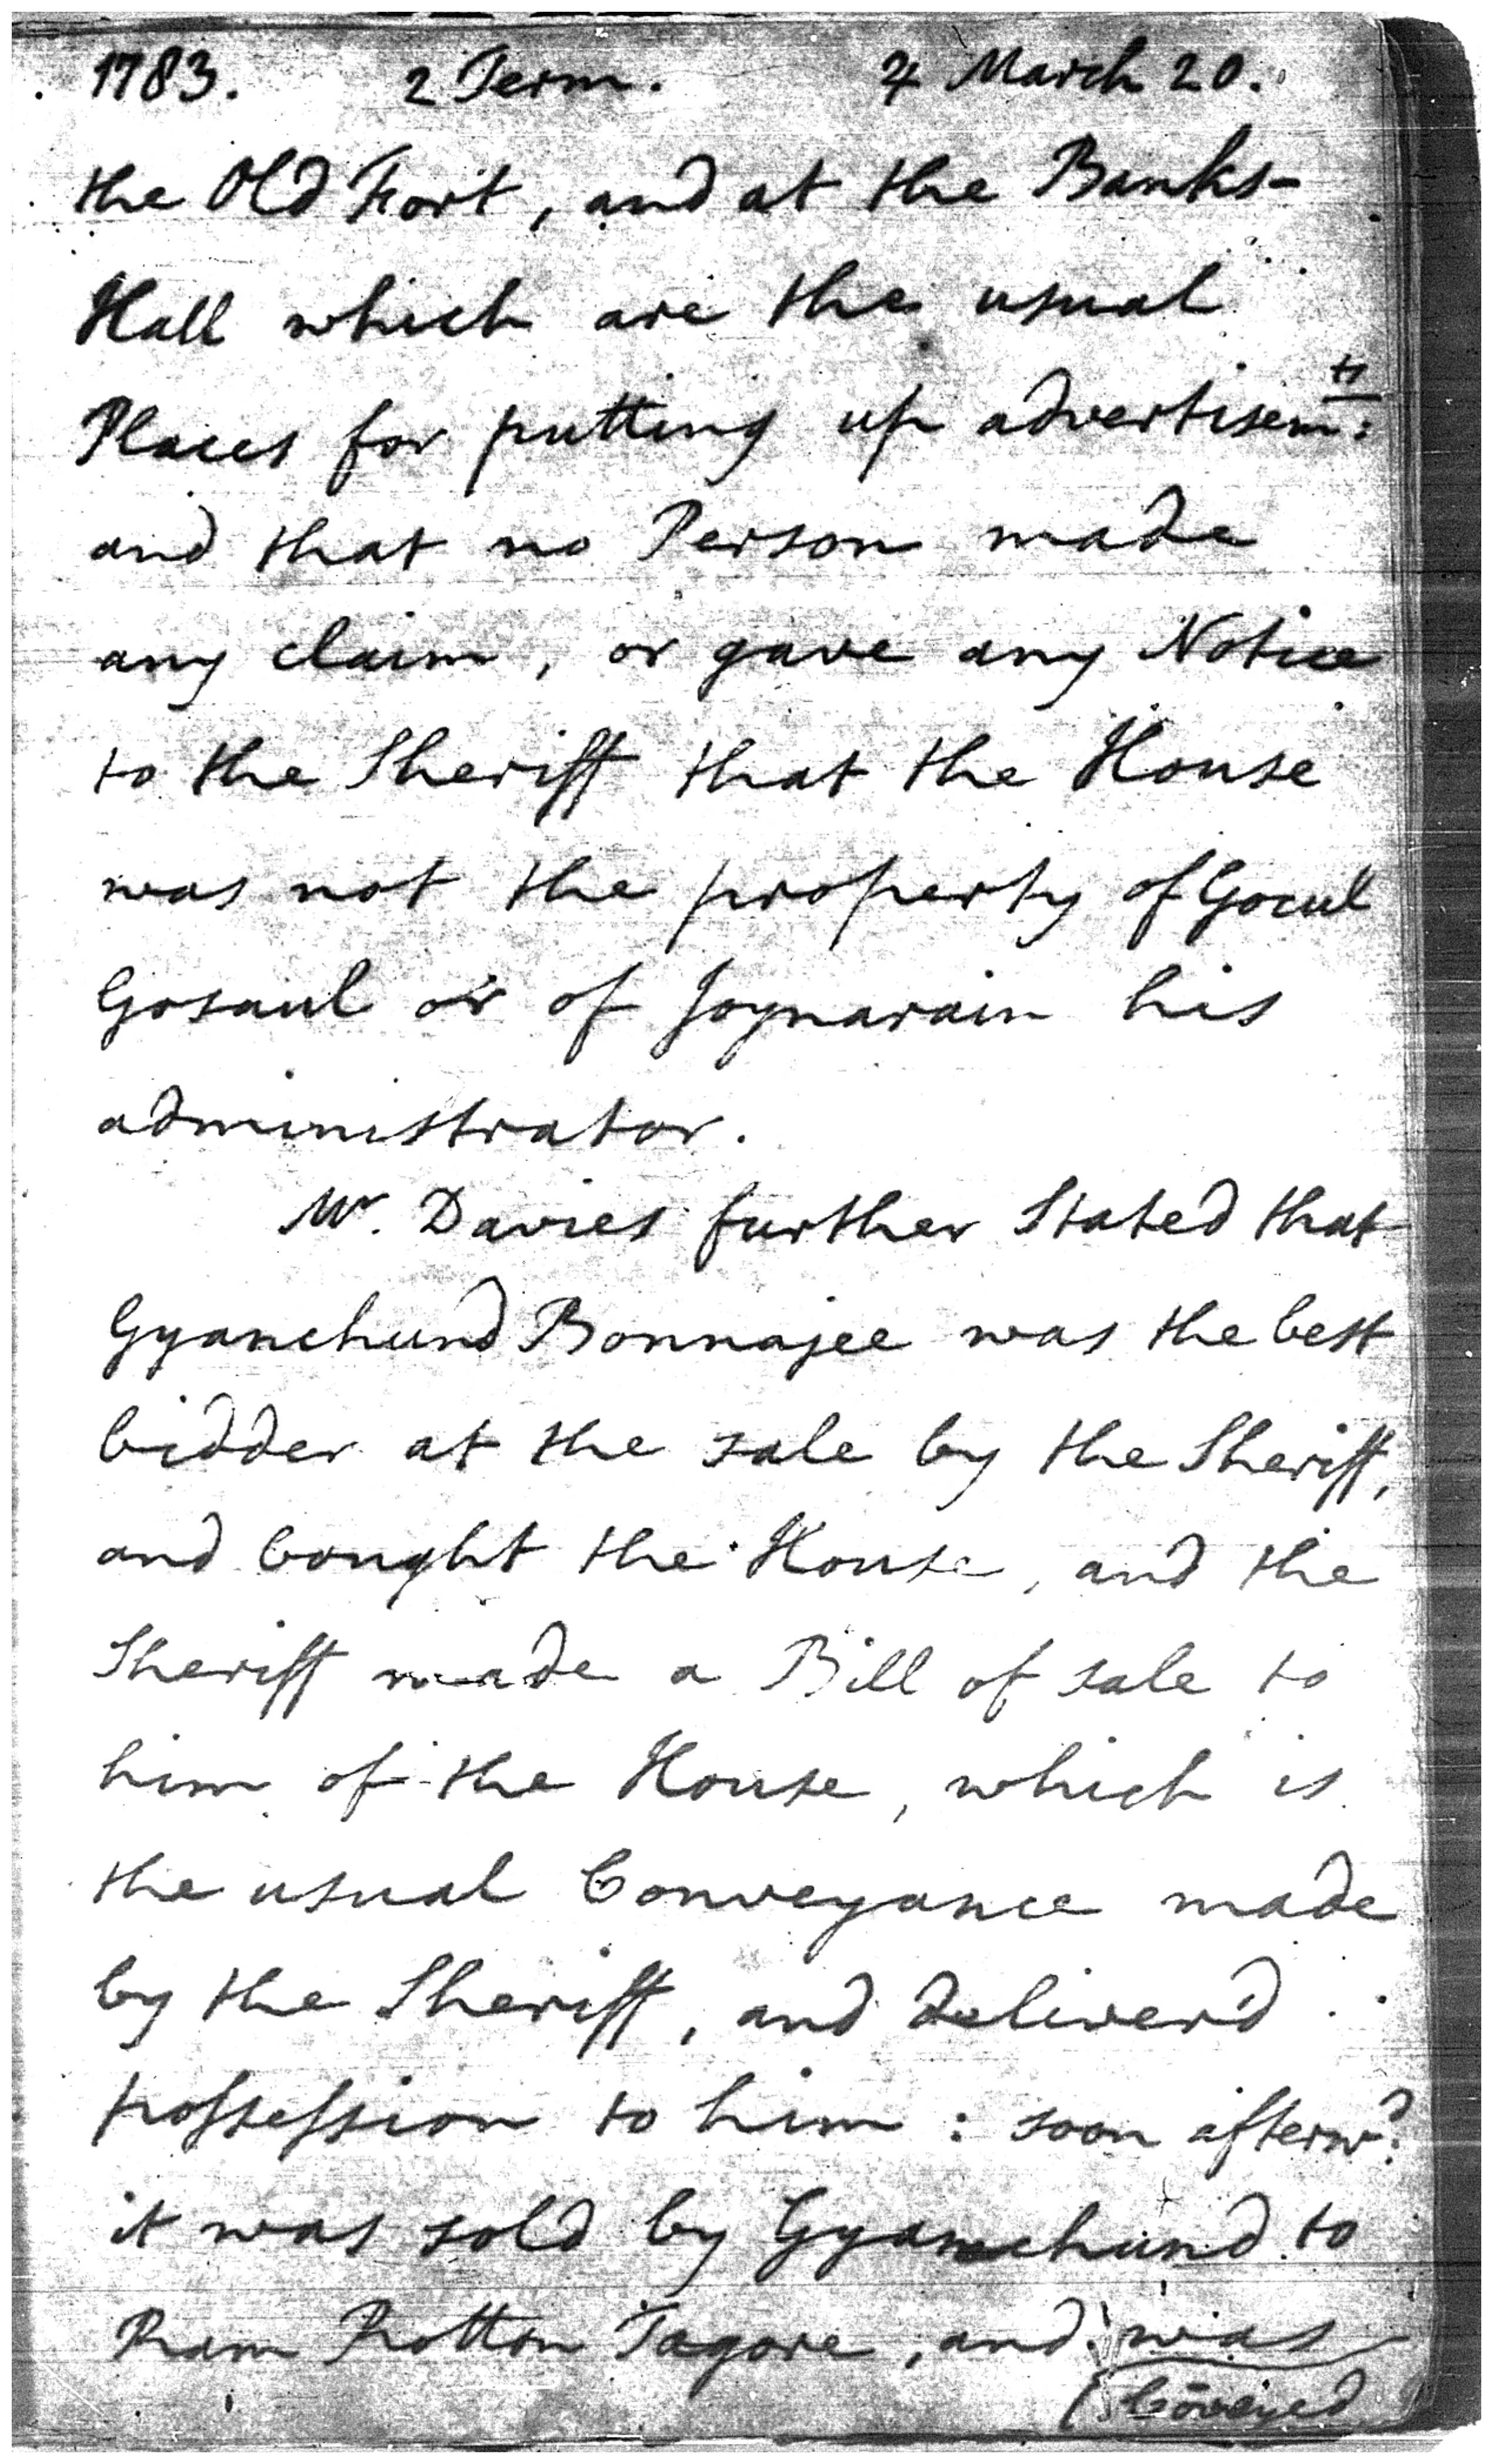 1783. 2 Term. ♃ March 20.
the Old Fort, and at the Banks-
Hall which are the usual
Places for putting up advertisem:ts
and that no Person made
any claim, or gave any Notice
to the Sheriff that the House
was not the property of Gocul
Gosaul or of Joynarain his
administrator.
Mr. Davies further Stated that
Gyanchund Bonnajee was the best
bidder at the sale by the Sheriff,
and bought the House, and the
Sheriff made a Bill of sale to
him of the House, which is
the usual Conveyance made
by the Sheriff, and deliver'd
possession to him : soon afterw:d
it was sold by Gyanchund to
Ram Rotton Tagore, and was
Cōveyed